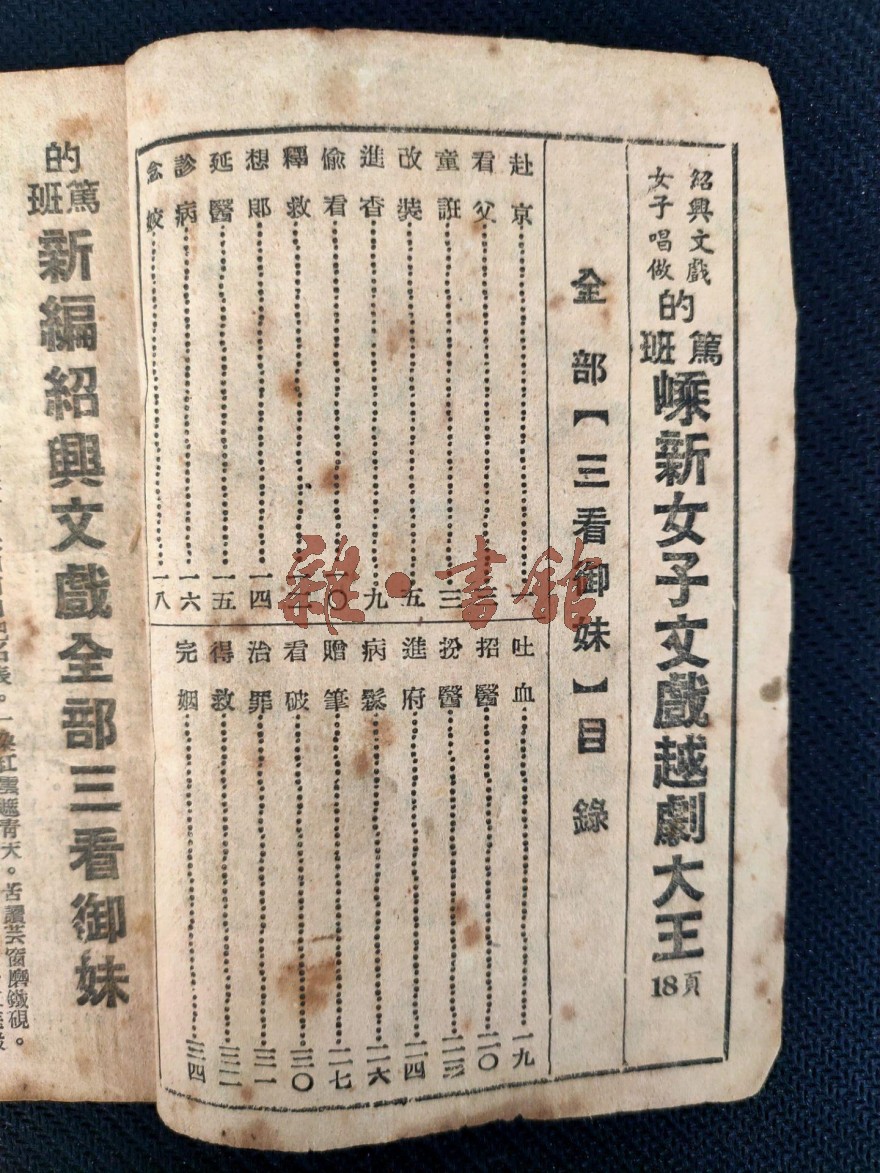 紹興文戲
女子唱做
的篤班
嵊新女子文戲越劇大王
18頁
全部【三看御妹】目錄
赴京……一
看父……三
童誑……三
改裝……五
進香……九
偷看……一〇
釋救……一二
想郎……一四
延醫……一五
診病……一六
念妏……一八
吐血……一九
招醫……二〇
扮醫……二三
進府……二四
病鬆……二六
贈筆……二七
看破……三〇
治罪……三一
得救……三二
完姻……三四
的篤班
新編紹興文戲全部三看御妹
紅雲遮青天。苦讀芸窗磨鐵硯。
雜·書館